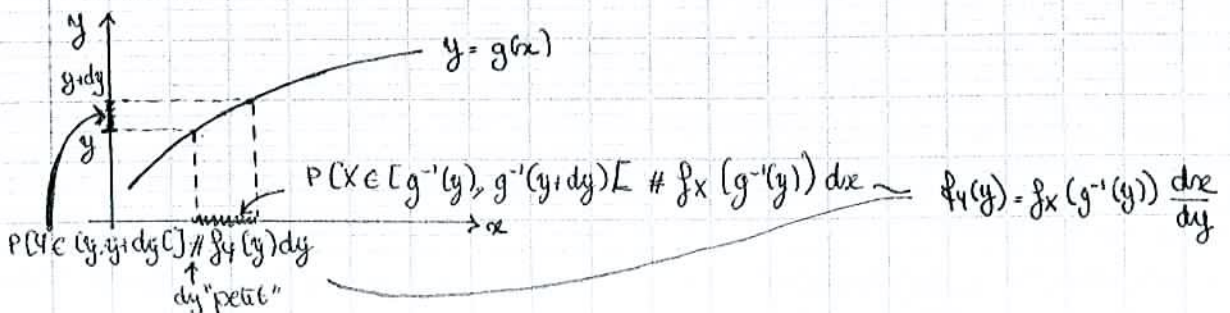 y
y = g(x)
y+dy
y
P[X ∈ [g⁻¹(y), g⁻¹(y+dy)[ # f_X (g⁻¹(y)) dx
f_Y(y) = f_X (g⁻¹(y)) dx/dy
x
P[Y ∈ [y, y+dy[] # f_Y(y)dy
dy "petit"